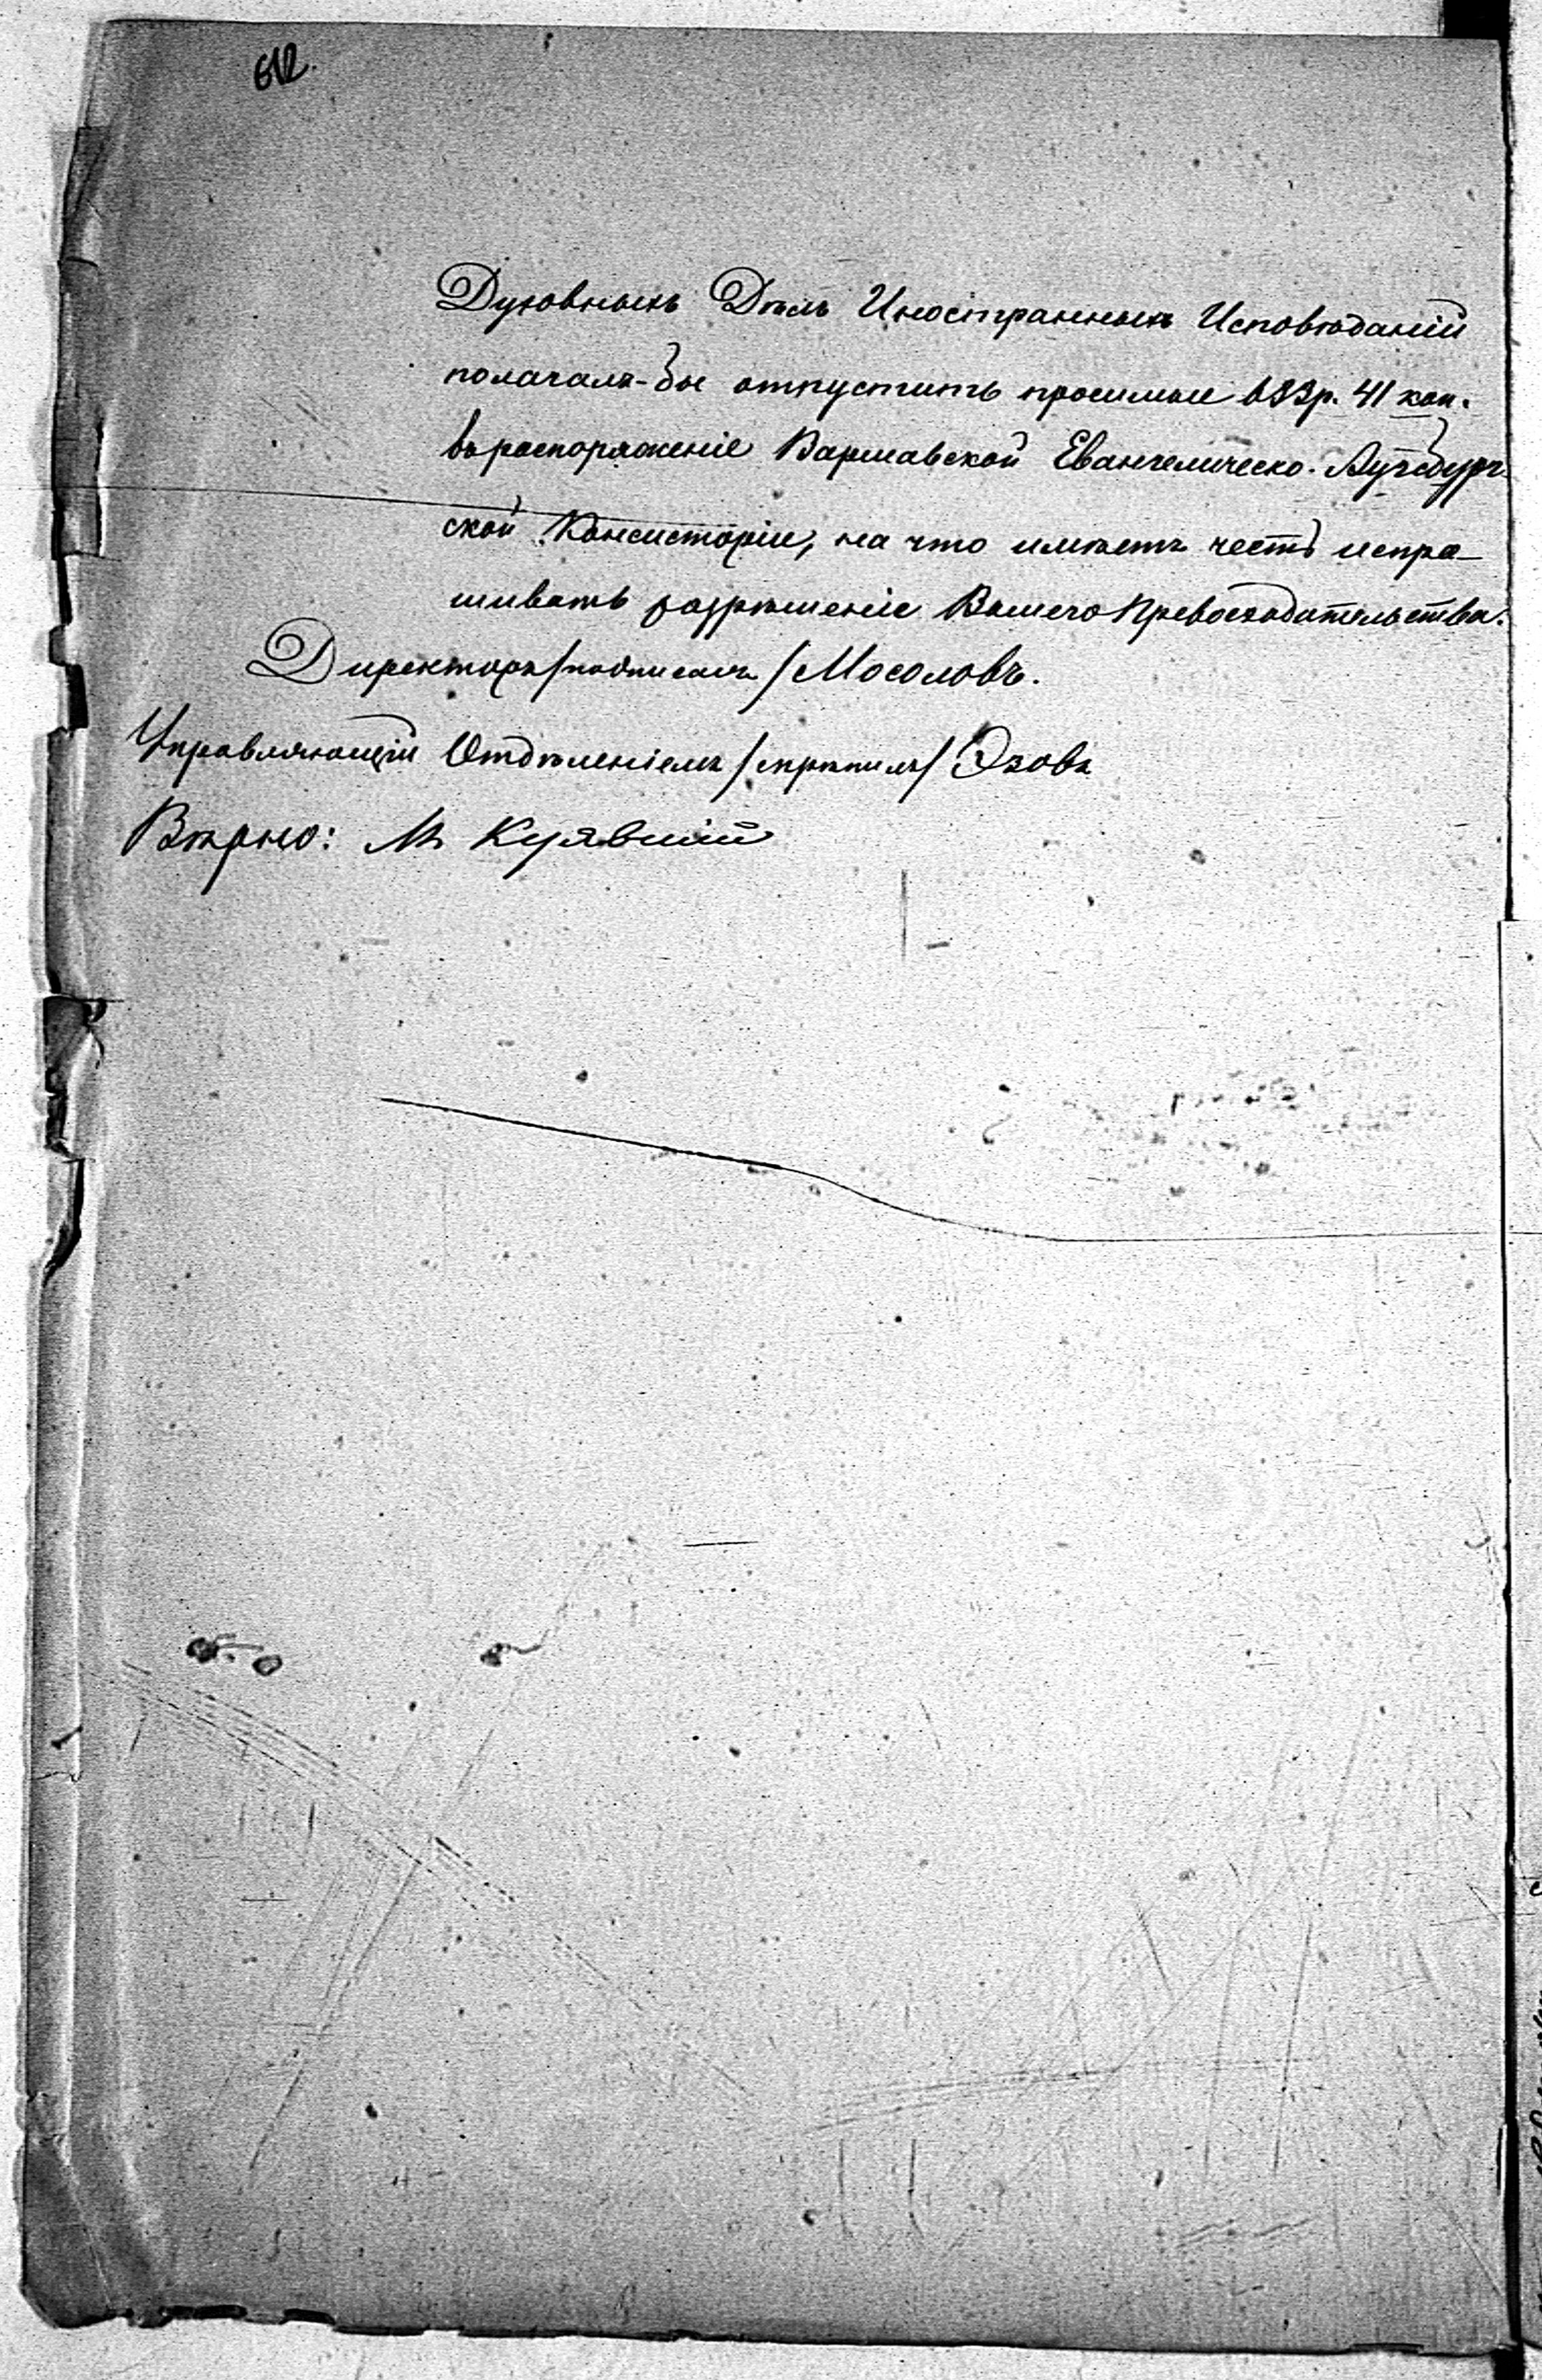 612.
Духовныхъ Дѣлъ Иностранныхъ Исповѣданій
полагалъ-бы отпустить просимые 683 р. 41 коп.
въ распоряженіе Варшавской Евангелическо-Аугсбург-
ской Консисторіи, на что имѣетъ честь испра-
шивать разрѣшеніе Вашего Превосходительства.
Директоръ /подписалъ/ Мосоловъ.
Управляющій Отдѣленіемъ /скрѣпилъ/ Эзовъ
Вѣрно: М